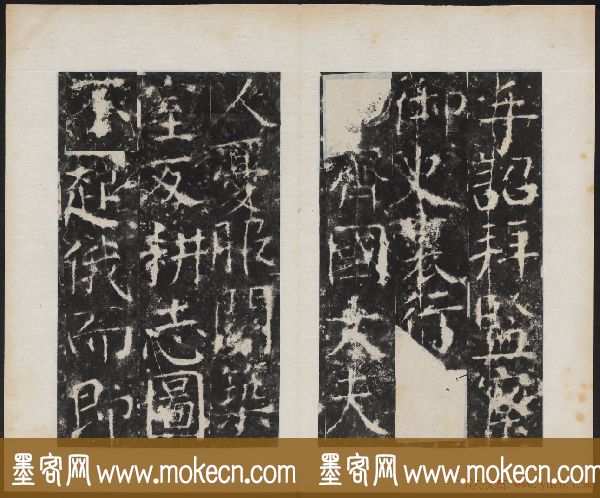 手詔拜監察
御史裏行
齊國太夫
人憂服闋築
室反耕志圖
不起俄而即
墨客网 www.mokecn.com
墨客网 www.mokecn.com